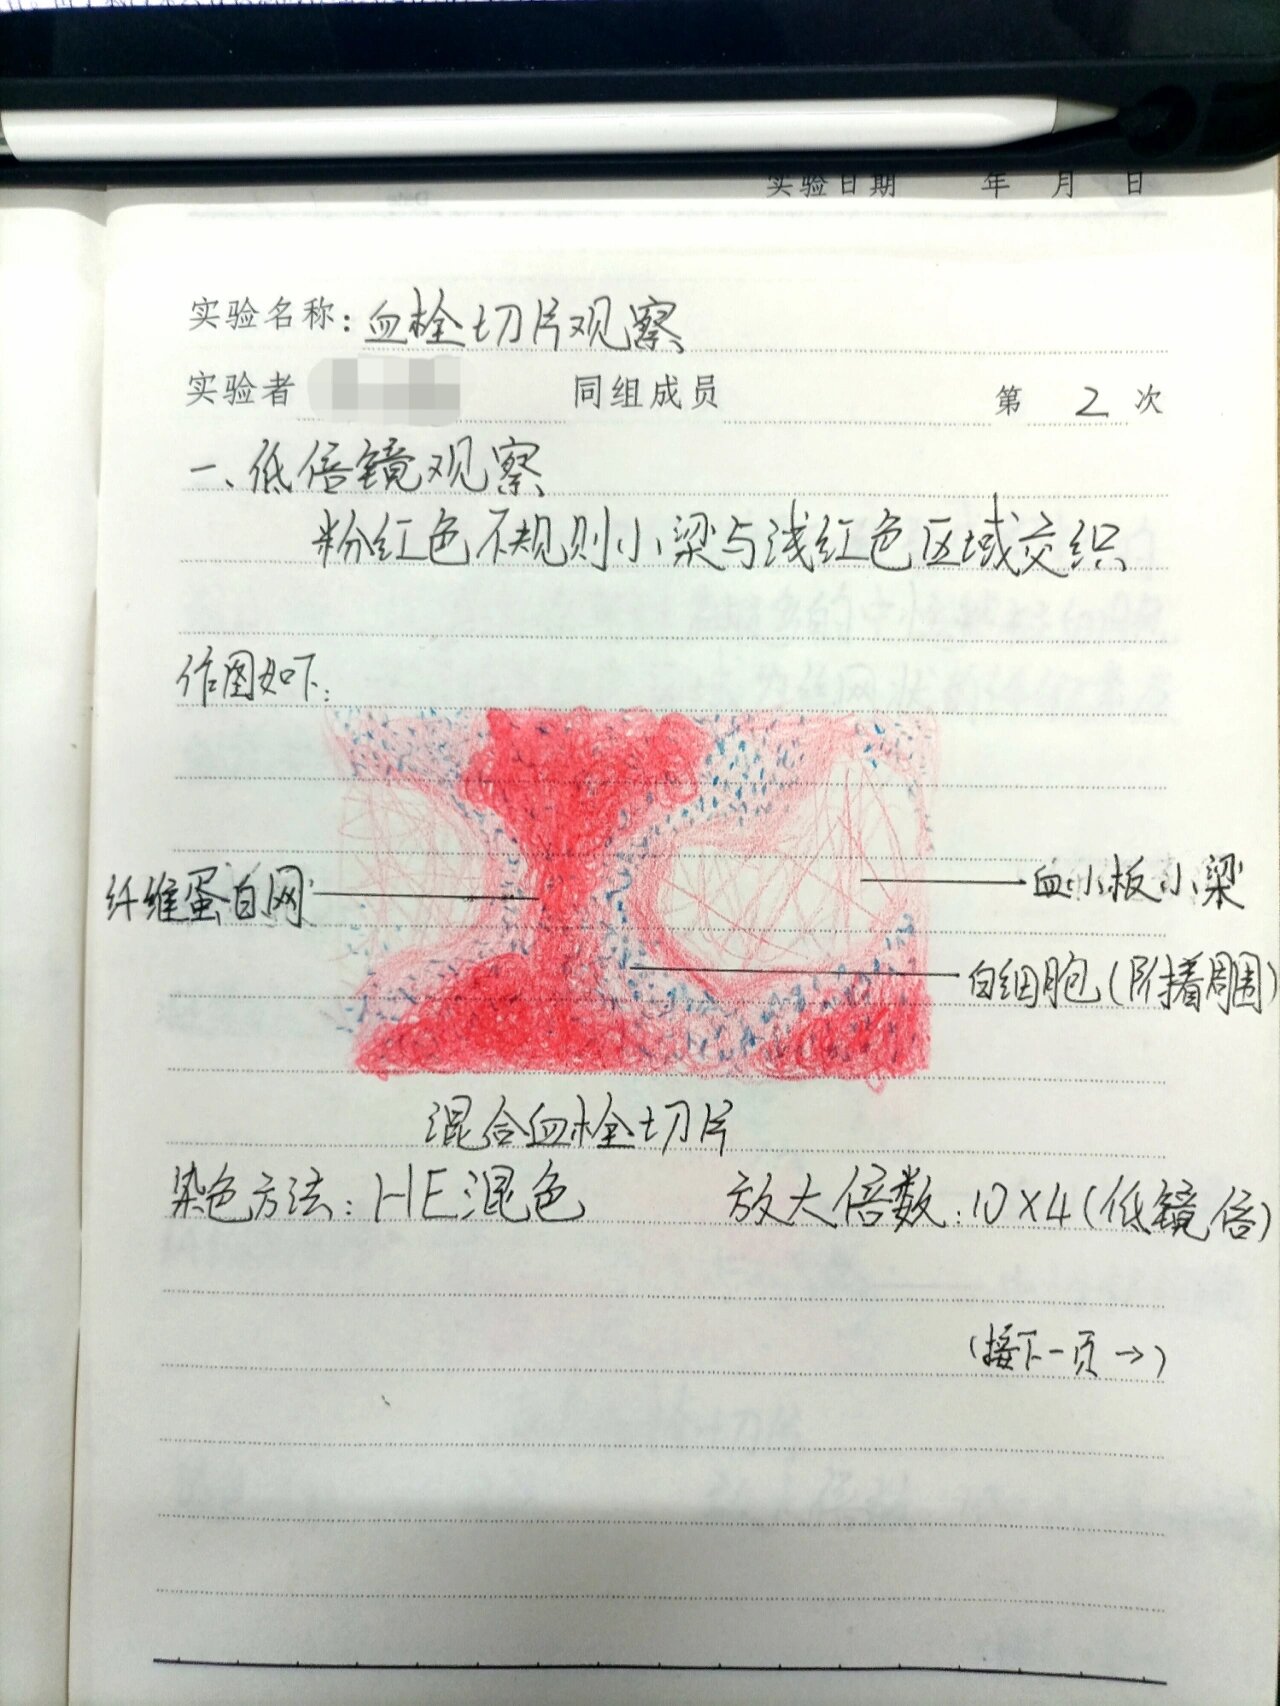 实验日期 年 月 日
实验名称:血栓切片观察
实验者 同组成员 第 2 次
一、低倍镜观察
粉红色不规则小梁与浅红色区域交织
作图如下:
纤维蛋白网
血小板小梁
白细胞(附着周围)
混合血栓切片
染色方法:HE混色 放大倍数:10×4(低镜倍)
(接下一页→)